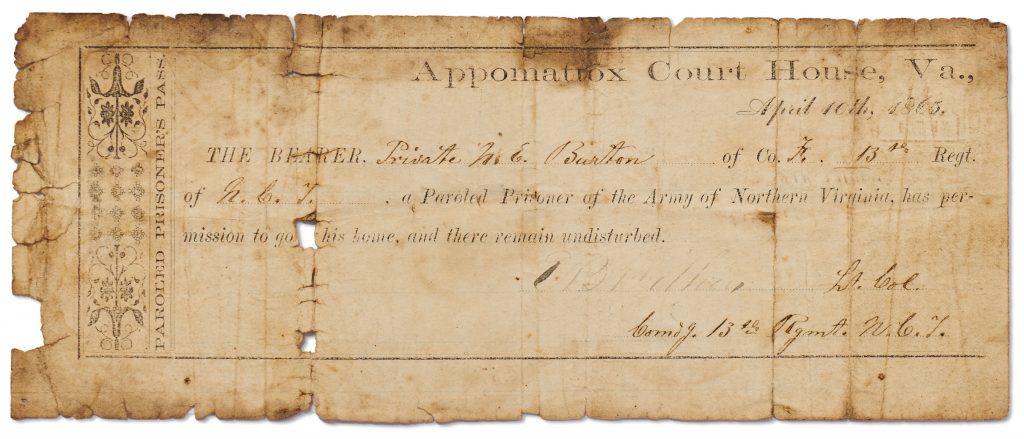 PAROLED PRISONER'S PASS.
Appomattox Court House, Va.,
April 10th, 1865.
THE BEARER, Private W. E. Burton of Co. F. 13th Regt.
of N. C. T. , a Paroled Prisoner of the Army of Northern Virginia, has per-
mission to go his home, and there remain undisturbed.
Lt. Col.
Comdg. 13th Rgmt. N. C. T.